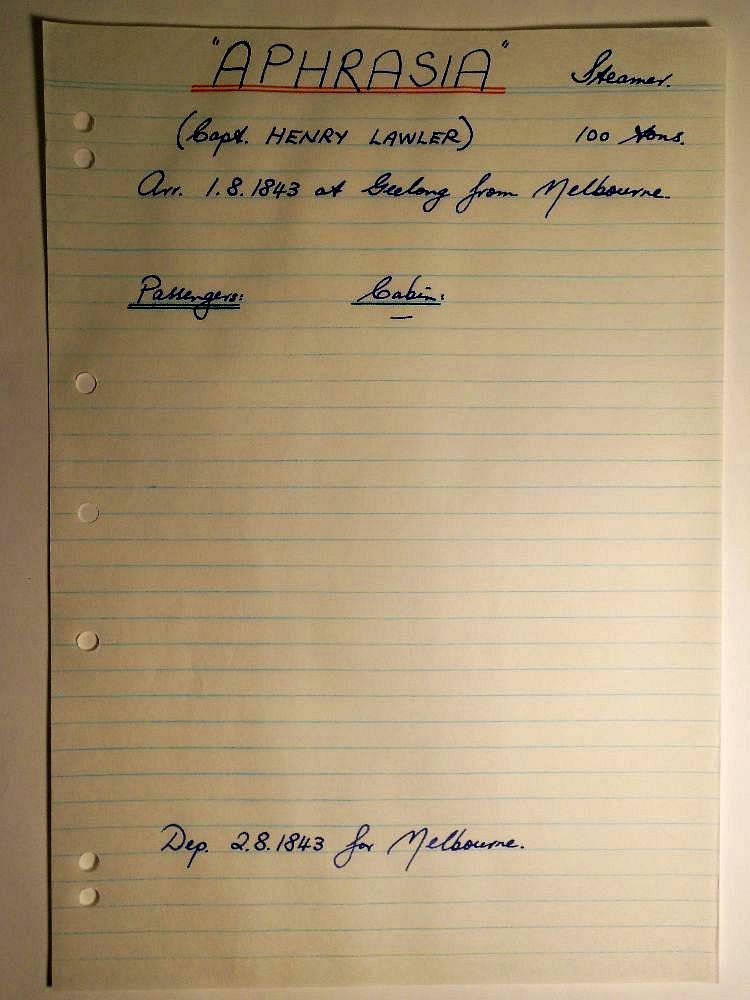 "APHRASIA" Steamer.
(Capt. HENRY LAWLER) 100 tons.
Arr. 1.8.1843 at Geelong from Melbourne.
Passengers: Cabin:
—
Dep. 2.8.1843 for Melbourne.